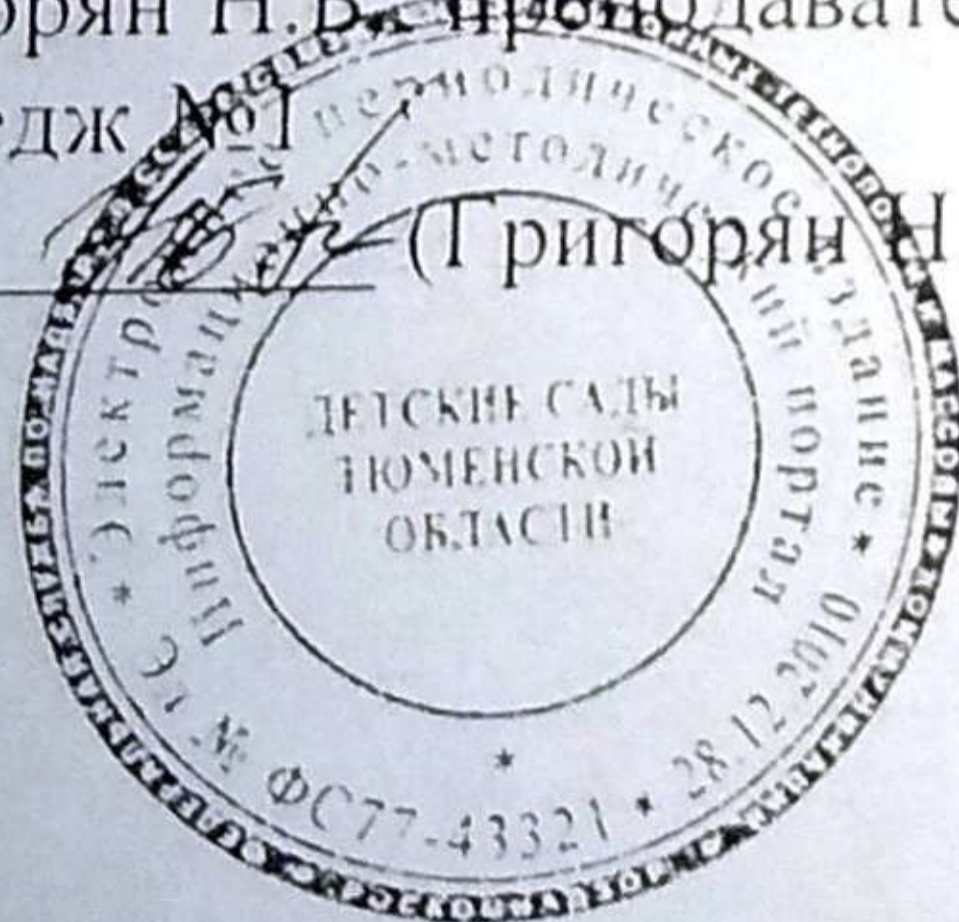 орян Н.В. преподавате
едж №1
(Григорян Н
* Электронное периодическое издание *
Эл № ФС77-43321 * 28.12.2010
Информационно-методический портал
*
ДЕТСКИЕ САДЫ
ТЮМЕНСКОЙ
ОБЛАСТИ